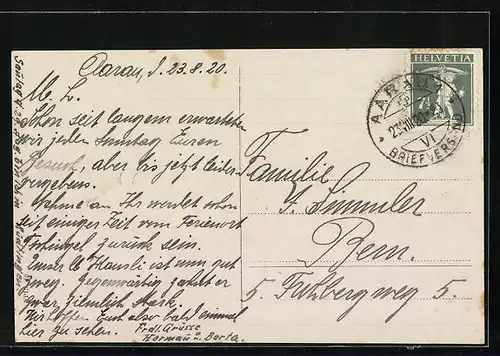 Aarau, d. 23.8.20.
M. L.
Schon seit langem erwarteten
wir jeden Sonntag Euren
Besuch, aber bis jetzt leider
vergebens.
Nehme an Ihr werdet schon
seit einiger Zeit vom Ferienort
zurück sein.
Unser Hansli ist nun gut
zweg. Gegenwärtig zahnt er
zwar ziemlich stark.
Wir hoffen Euch also bald einmal
hier zu sehen. Frdl. Grüsse
Herman u. Berta.
HELVETIA
7½
AARAU 1
BRIEFVERSAND
VI
Familie
F. Simmler
Bern.
5. Falkenweg 5.